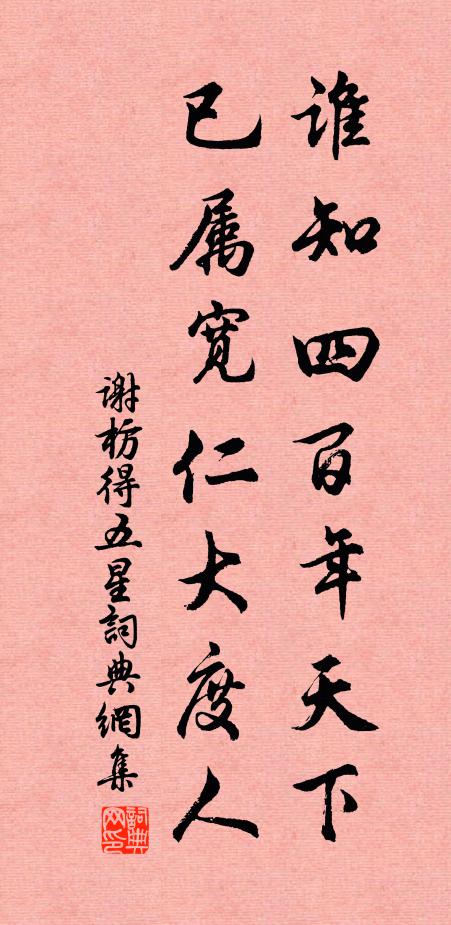 谁知四百年天下
已属宽仁大度人
谢枋得五星詞典網集
詞典网印